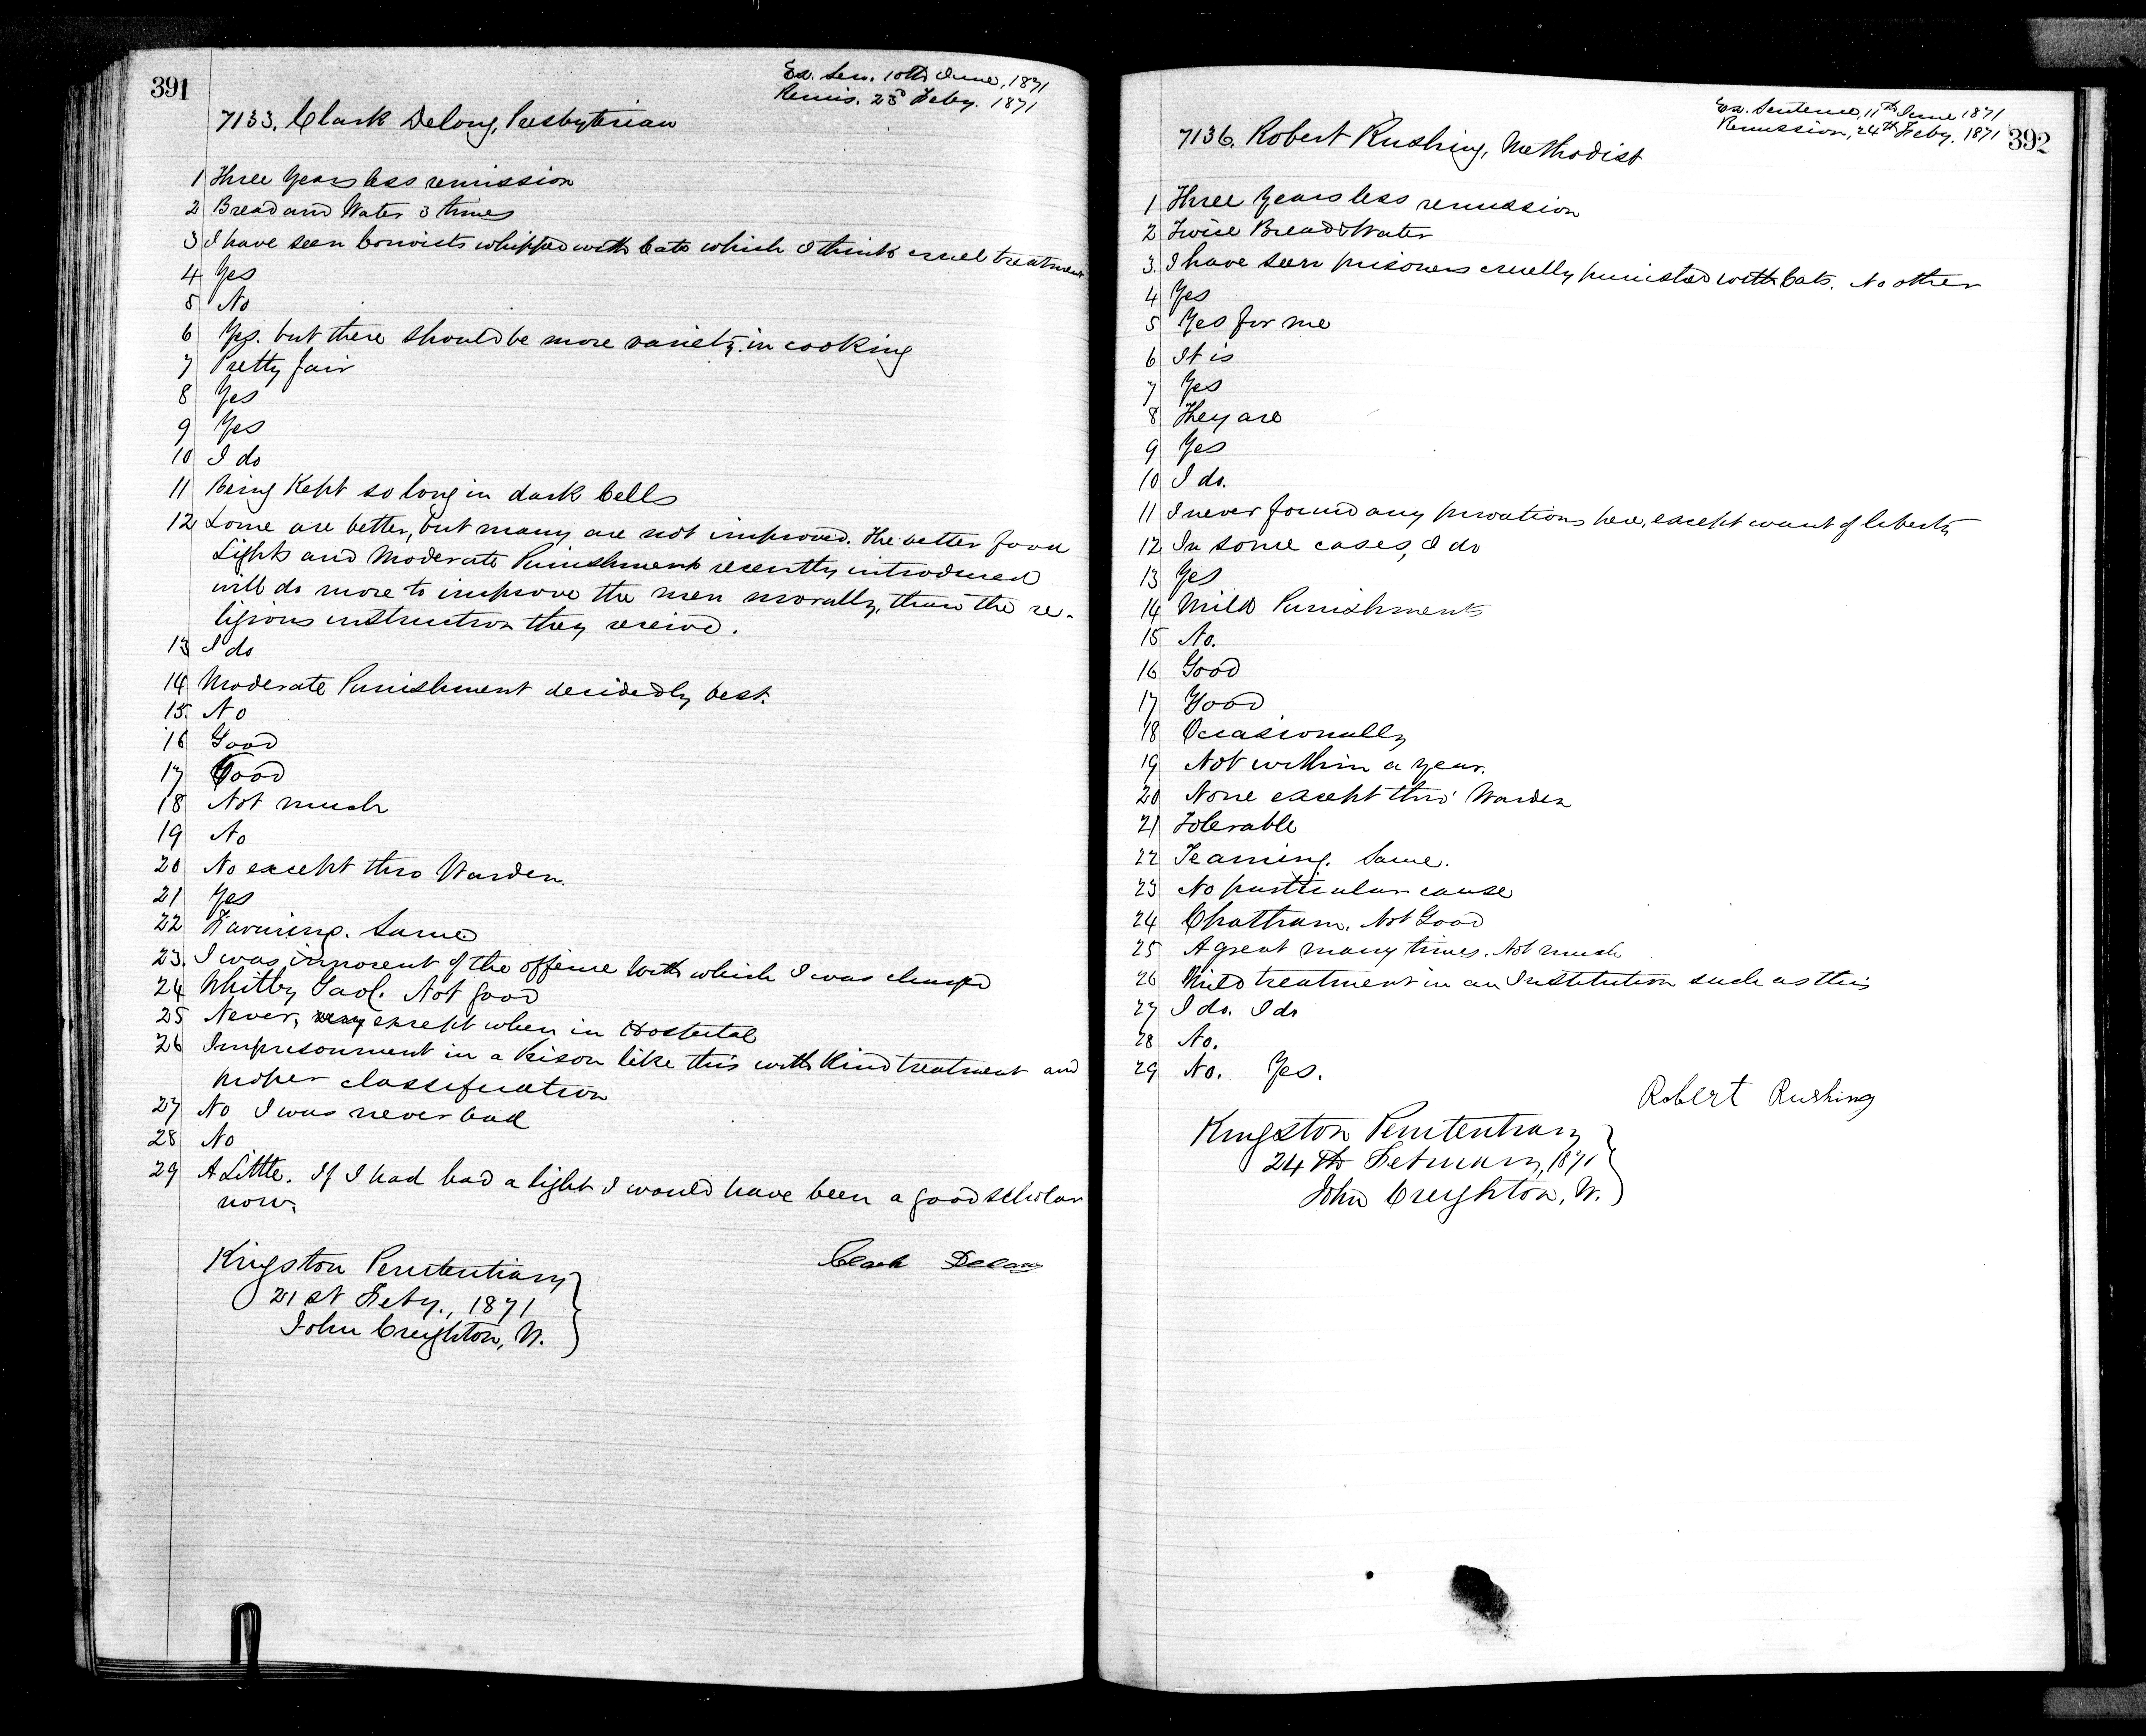 391
Ex. Sen. 10th June, 1871
Remis. 23d Feby. 1871
7133. Clark Delong, Presbyterian
1 Three Years less remission
2 Bread and Water 3 times
3 I have seen Convicts whipped with Cats which I think cruel treatment
4 Yes
5 No
6 Yes. but there should be more variety in cooking
7 Pretty fair
8 Yes
9 Yes
10 I do
11 Being Kept so long in dark Cells
12 Some are better, but many are not improved. The better food
Lights and Moderate Punishment recently introduced
will do more to improve the men morally, than the re-
ligious instruction they receive.
13 I do
14 Moderate Punishment decidedly best.
15. No
16 Good
17 Good
18 Not much
19 No
20 No except thro Warden.
21 Yes
22 Farming. Same
23. I was innocent of the offence with which I was charged
24 Whitby Gaol. Not good
25 Never, except when in Hospital
26 Imprisonment in a Prison like this with Kind treatment and
proper classification
27 No I was never bad
28 No
29 A Little. If I had had a light I would have been a good scholar
now.
Clark Delong
Kingston Penitentiary
21st Feby., 1871
John Creighton, W.
Ex. Sentence, 11th June 1871
Remission, 24th Feby. 1871
392
7136. Robert Rushing, Methodist
1 Three Years less remission
2 Twice Bread & Water
3. I have seen prisoners cruelly punished with Cats. No other
4 Yes
5 Yes for me
6 It is
7 Yes
8 They are
9 Yes
10 I do.
11 I never found any privations here, except want of liberty
12 In some cases, I do
13 Yes
14 Mild Punishments
15 No.
16 Good
17 Good
18 Occasionally
19 Not within a year.
20 None except thro' Warden
21 Tolerable
22 Teaming. Same.
23 No particular cause
24 Chatham. Not Good
25 A great many times. Not much
26 Mild treatment in an Institution such as this
27 I do. I do
28 No.
29 No. Yes.
Robert Rushing
Kingston Penitentiary
24th February, 1871
John Creighton, W.